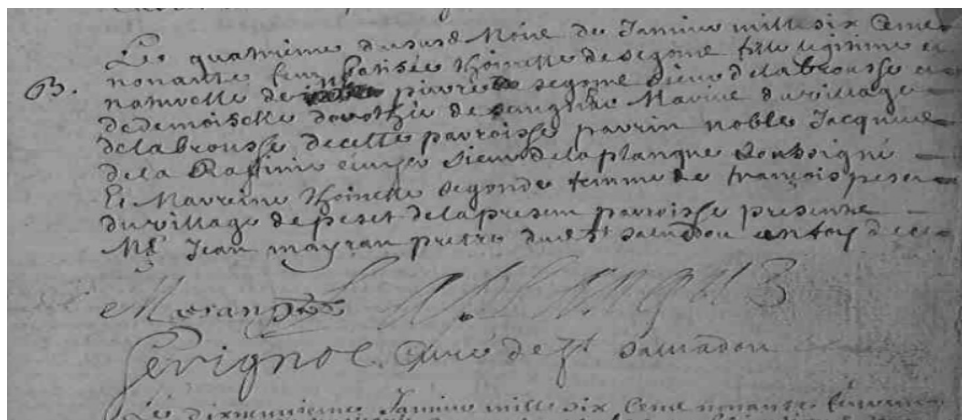 Le quatrieme du susd Mois de Janvier mille six cens
B. nonante feut batisée thoinette de segonie fille legitime et
naturelle de pierre segonie sieur de labrousse et
de demoiselle dorothée de Mariée du village
de labrousse de cette parroisse parrin noble Jacques
de la escuyer sieur de la planque soubsigné
Et Marreine thoinette segonde femme de françois peset
du village de peset de la presen parroisse presense
Mr Jean mayran pretre de St salvadou en foy de ce
Meranptre Laplanque
Gevignol Curé de St salvadou
Le dixneuvieme Janvier mille six cens nonante